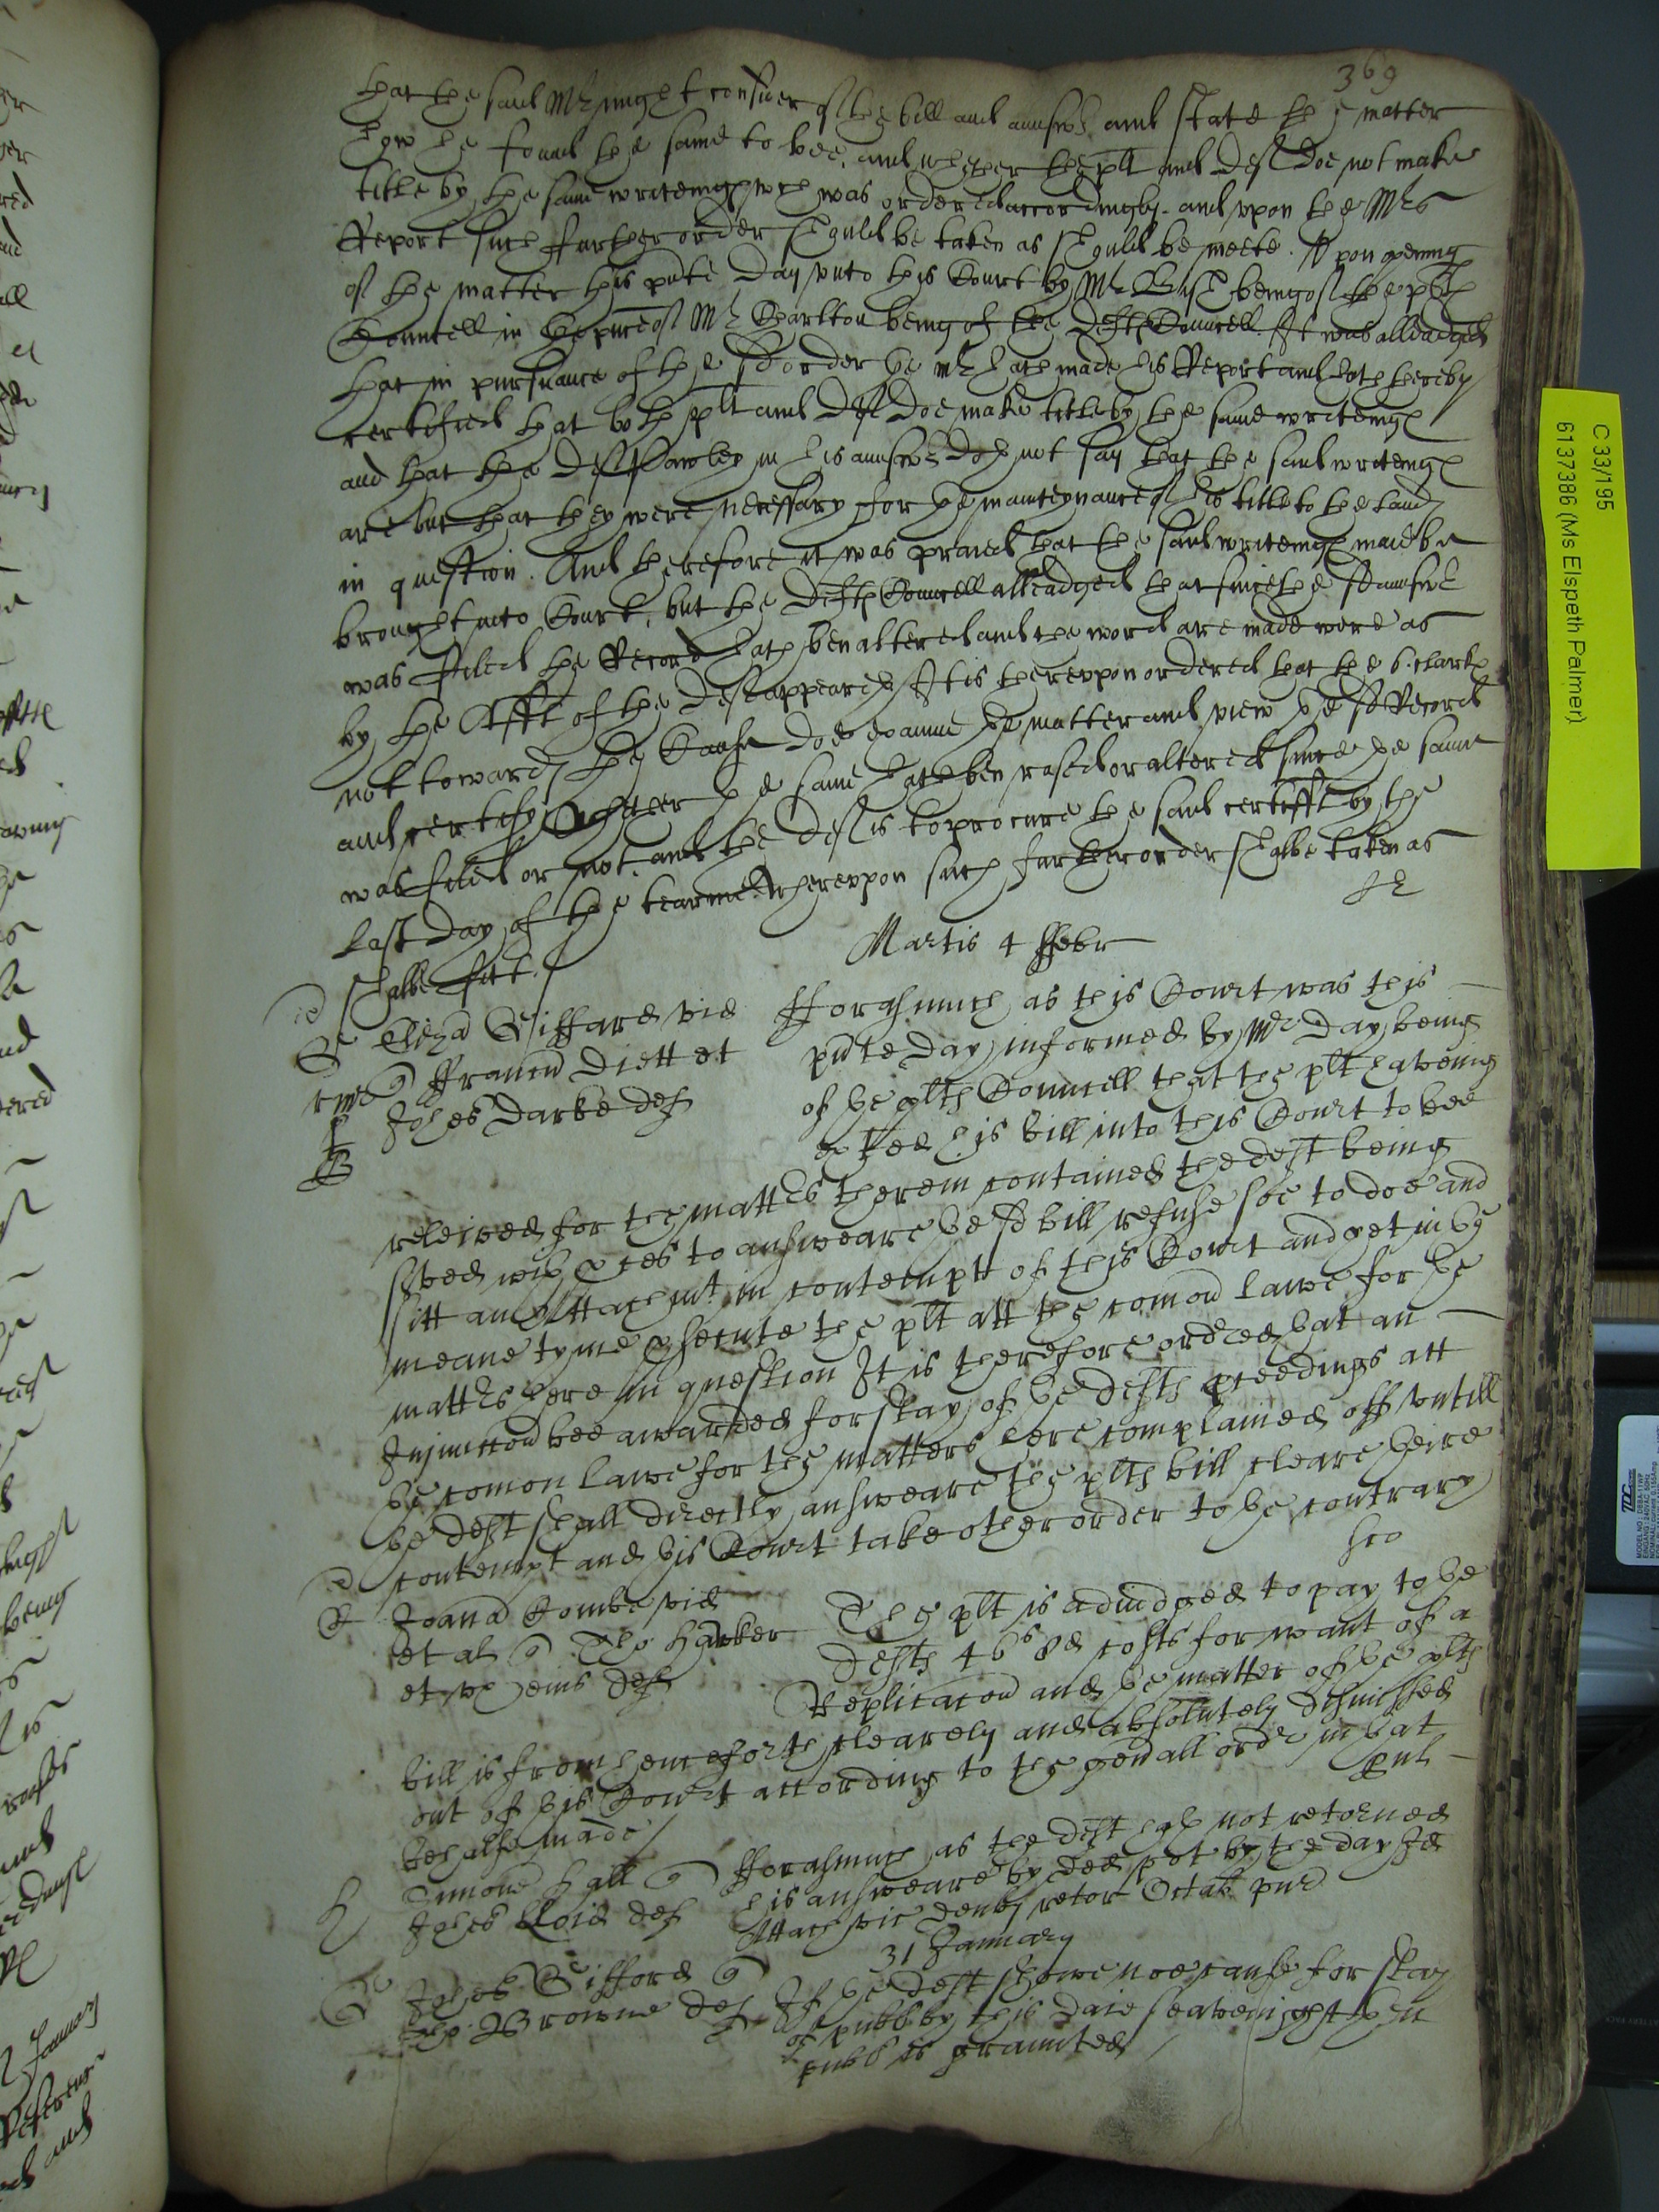 369
that the said Mr might consider of the bill and answer and state the matter
how he found the same to bee, and whether the plt and deft doe not make
title by the same writeings wch was ordered accordingly. and vpon the Mrs
Report such further order should be taken as should be meete. Vpon opening
of the matter this pnte day vnto this Court by Mr being of the plts
Councell in the pnce of Mr Charlton being of the defts Councell. It was alleadged
that in pursuance of the sd order the Mr hath made his Report and hath thereby
certified that both plt and deft doe make title by the same writeings
and that the deft Pawley in his answer doth not say that the said writeings
are but that they were necessary for the mainteynance of his title to the lands
in question. And therefore it was praied that the said writeings maie be
brought into Court, but the defts Councell alleadged that since the sd answer
was filed the Record hath ben altered and the word are made were as
by the Afft of the deft appeareth It is therevpon ordered that the 6. clarks
not towards the Cause doe examine the matter and view the sd Record
and certify whether the same hath ben rased or altered since the same
was filed or not. and the deft is to procure the said certifft by the
last day of the tearme Wherevpon such further order shalbe taken as
shalbe fitt.
Martis 4 ffebr
Eliza Giffard vid
franc Diett et
Johes Darke def
fforasmuch as this Court was this
pnte day informed by Mr Day being
of the plts Councell that the plt haveing
exhed his bill into this Court to bee
releived for the mattrs therein contained the deft being
sved wth pces to answeare the sd bill refuse soe to doe and
sitt an Attachmt in contempt of this Court and yet in the
meane tyme psecute the plt att the comon lawe for the
mattrs here in question It is therefore ordred that an
Injunccon bee awarded for stay of the defts pceedings att
the comon lawe for the matters here complained off vntill
the deft shall directly answeare the plts bill cleare theire
contempt and this Court take other order to the contrary
Joana Combe vid
et al Tho Harker
et ux eius def
The plt is adiudged to pay to the
defts 46s 8d costs for want of a
Replicacon and the matter of the plts
bill is from henceforth clearely and absolutely dismissed
out of this Court according to the genall ordr in that
behalfe made
Simond Hall
Johes Lloid def
fforasmuch as the deft hath not retorned
his answeare by ded pot by the day Id
Attach vic denb retor Octab pur
31 January
Johes Gifford
Browne def
If the deft showe noe cause for stay
of publ by this daie seavenight then
publ is graunted
C 33/195
61373386 (Ms Elspeth Palmer)